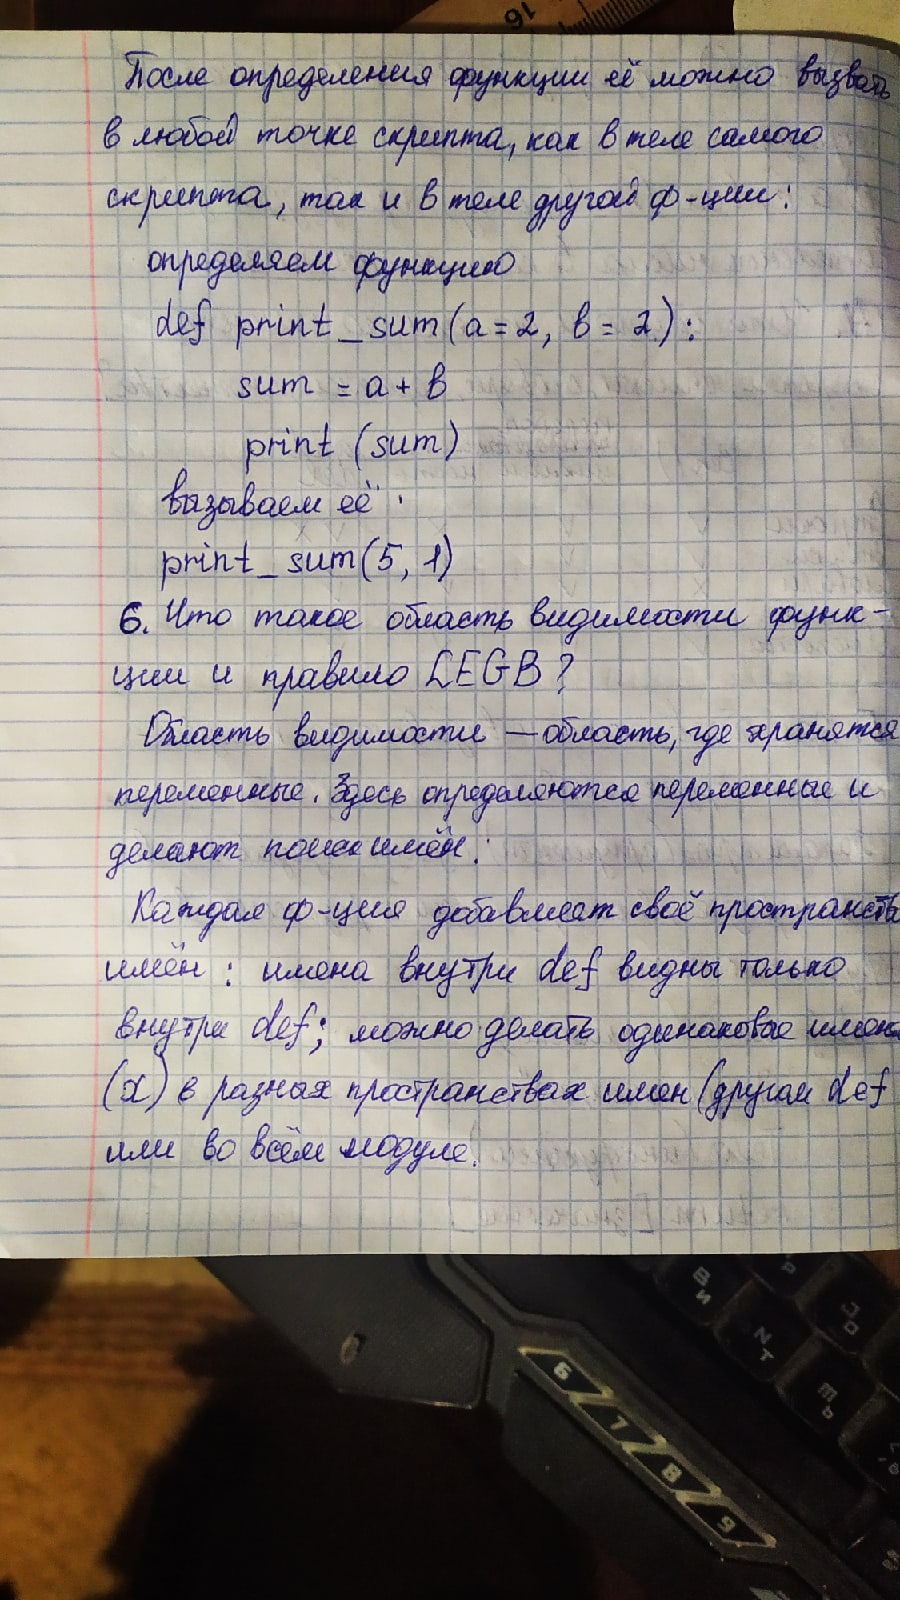 После определения функции её можно вызвать
в любой точке скрипта, как в теле самого
скрипта, так и в теле другой ф-ции:
определяем функцию
def print_sum(a=2, b=2):
sum = a + b
print (sum)
вызываем её
print_sum(5, 1)
6. Что такое область видимости функ-
ции и правило LEGB?
Область видимости — область, где хранятся
переменные. Здесь определяются переменные и
делают поиск имён:
Каждая ф-ция добавляет своё пространств
имён: имена внутри def видны только
внутри def; можно делать одинаковые имена
(x) в разных пространствах имен (другом def
или во всём модуле.
16
6
7
8
9
В И
N Т
J О
Ь